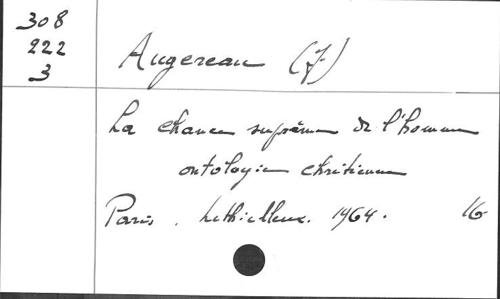 308
222
3
Augereau (J)
La chance suprême de l'homme
ontologie chrétienne
Paris. Lethielleux. 1964. 16